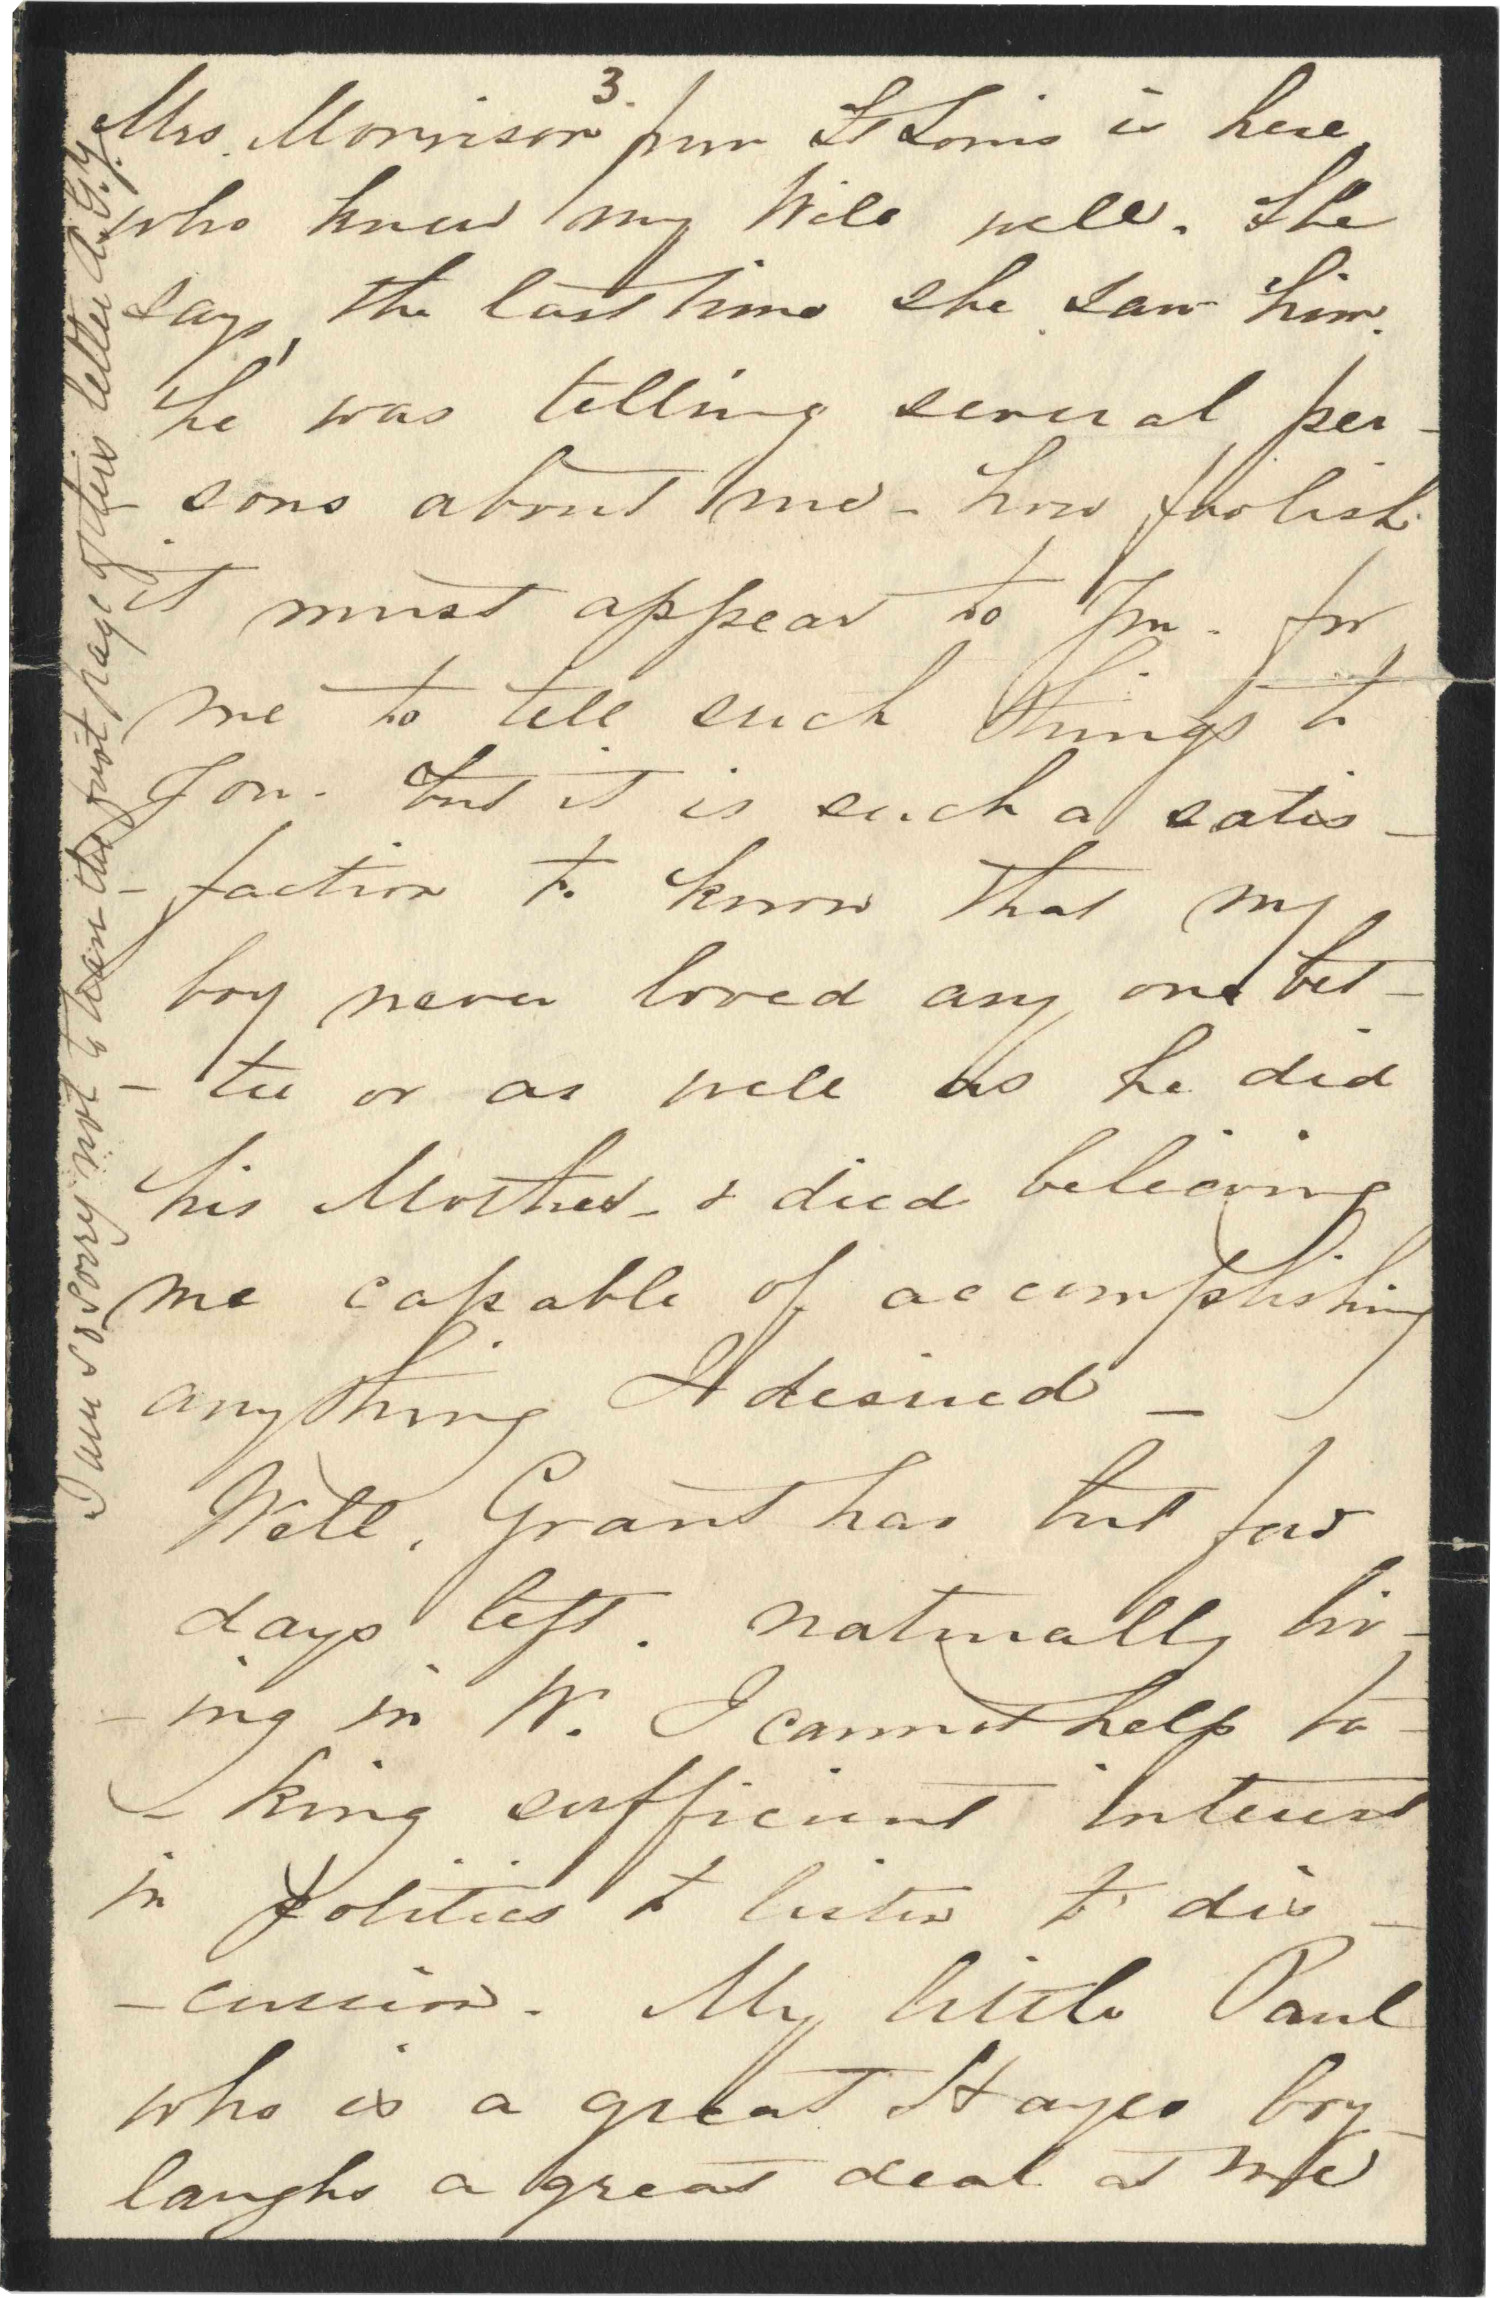 3.
Mrs. Morrison from St Louis is here
who knew my Will well. She
says, the last time she saw him.
he was telling several per-
- sons about me - how foolish
it must appear to you. for
me to tell such things to
you. but it is such a satis-
- faction to know that my
boy never loved any one bet-
- ter or as well as he did
his Mother - & died believing
me capable of accomplishing
anything I desired -
Well, Grant has but few
days left. naturally liv-
- ing in W. I cannot help ta-
- king sufficient interest
in politics to listen to dis-
- cussion. My little Paul
who is a great Hayes boy
laughs a great deal at me
I am so sorry not to the first page of this letter A.G.Y.